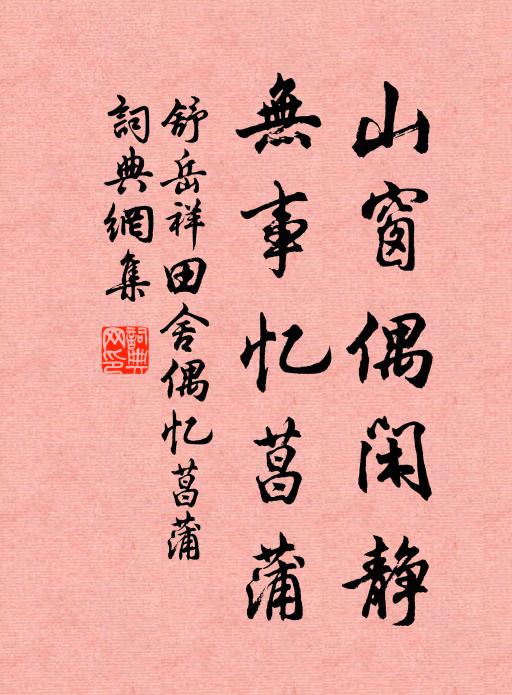 山窗偶闲静
無事忆菖蒲
舒岳祥田舍偶忆菖蒲
詞典網集
詞典網印